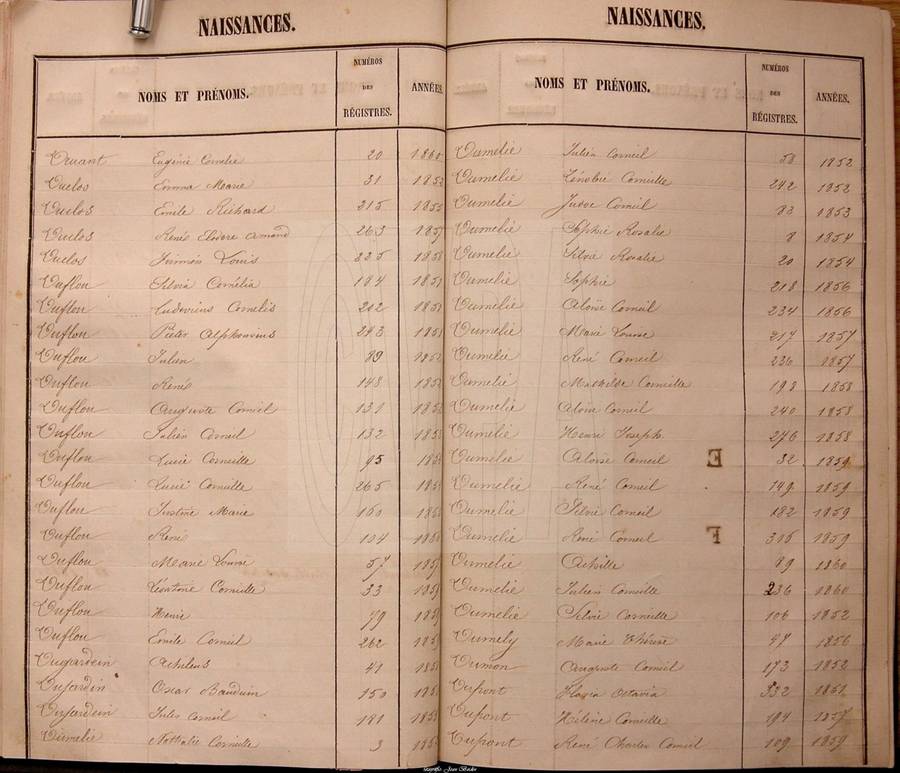 NAISSANCES.
NOMS ET PRÉNOMS. NUMÉROS DES RÉGISTRES. ANNÉES.
Druant Eugénie Cornelie 20 1860
Duclos Emma Marie 31 185
Duclos Emile Richard 215 185
Duclos René Amand 263 185
Duclos Firmin Louis 225 185
Duflou Silvia Cornélia 184 185
Duflou Ludovicus Cornelis 202 185
Duflou Pieter Alphonsius 243 185
Duflou Julien 89 185
Duflou René 148 185
Duflou Auguste Corneil 131 185
Duflou Julien Corneil 132 185
Duflou Lucie Corneille 95 185
Duflou Lucie Corneille 265 185
Duflou Justine Marie 160 185
Duflou René 104 185
Duflou Marie Louise 57 185
Duflou Léontine Corneille 33 185
Duflou Henri 79 185
Duflou Emile Corneil 262 185
Dugardein Achilius 41 185
Dujardin Oscar Bauduin 150 185
Dujardein Jules Corneil 181 185
Dumelie Nathalie Corneille 3 185
NAISSANCES.
NOMS ET PRÉNOMS. NUMÉROS DES RÉGISTRES. ANNÉES.
Dumelie Julien Corneil 58 1852
Dumelie Zénobie Corneille 242 1852
Dumelie Corneil 82 1853
Dumelie Sophie Rosalie 8 1854
Dumelie Silvie Rosalie 20 1854
Dumelie Sophie 218 1856
Dumelie Aloïse Corneil 234 1856
Dumelie Marie Louise 217 1857
Dumelie René Corneil 236 1857
Dumelie Mathilde Corneille 198 1858
Dumelie Aloïse Corneil 240 1858
Dumelie Henri Joseph 276 1858
Dumelie Aloïse Corneil 32 1859
Dumelie René Corneil 149 1859
Dumelie Silvie Corneil 182 1859
Dumelie René Corneil 315 1859
Dumelie Achille 89 1860
Dumelie Julien Corneille 236 1860
Dumelie Silvie Corneille 106 1852
Dumely Marie Thérèse 47 1856
Dumon Auguste Corneil 173 1852
Dupont Flavia Octavia 332 1851
Dupont Hélène Corneille 194 1857
Dupont René Charles Corneil 109 1859